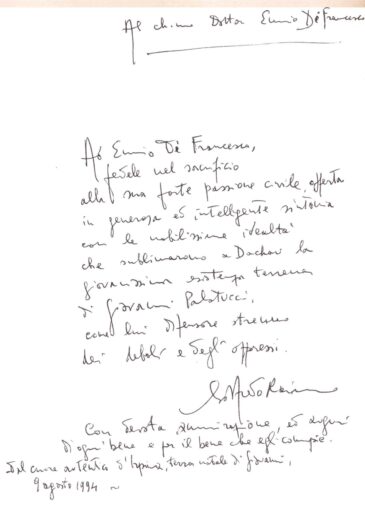 Al ch.mo Dottor Ennio Di Francesco
Ad Ennio Di Francesco,
fedele nel sacrificio
alla sua forte passione civile, offerta
in generosa ed intelligente sintonia
con le nobilissime idealtà
che sublimarono a Dachau la
giovanissima esistenza terrena
di Giovanni Palatucci,
come lui difensore strenuo
dei deboli e degli oppressi.
Con devota ammirazione, ed auguri
d'ogni bene e per il bene che egli compie.
Dal cuore d'Irpinia, terra natale di Giovanni,
9 agosto 1994